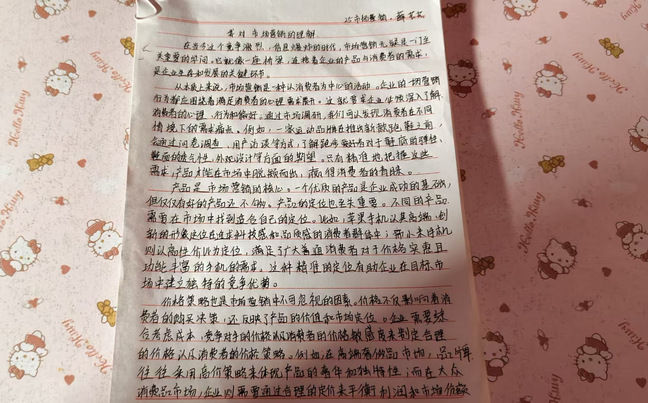 25市场营销
者对市场营销的理解
在当今这个竞争激烈、信息爆炸的时代,市场营销无疑是一门至
关重要的学问。它就像一座桥梁,连接着企业的产品与消费者的需求,
是企业生存和发展的关键环节。
从本质上来说,市场营销是一种以消费者为中心的活动。企业的一切营销
行为都应围绕着满足消费者的心理需求展开。这就要求企业必须深入了解
消费者的心理、行为和偏好。通过市场调研,我们可以发现消费者在不同
情境下的需求痛点。例如,一家运动品牌在推出新款跑鞋之前,
会通过问卷调查、用户访谈等方式,了解跑步爱好者对于鞋底的弹性、
鞋面的透气性、外观设计等方面的期望。只有精准地把握这些
需求,产品才能在市场中脱颖而出,赢得消费者的青睐。
产品是市场营销的核心。一个优质的产品是企业成功的基础,
但仅仅有好的产品还不够。产品的定位也至关重要。不同的产品
需要在市场中找到适合自己的定位。比如,苹果手机以其高端、创
新的形象定位在追求科技感和品质感的消费者群体中;而小米手机
则以高性价比为定位,满足了广大普通消费者对于价格实惠且
功能丰富的手机的需求。这种精准的定位有助企业在目标市
场中建立独特的竞争优势。
价格策略也是市场营销中不可忽视的因素。价格不仅影响着消费
者的购买决策,还反映了产品的价值和市场定位。企业需要综
合考虑成本、竞争对手的价格以及消费者的价格敏感度来制定合理
的价格以及消费者的价格策略。例如,在高端奢侈品市场,品牌
往往采用高价策略来体现产品的奢华和独特性;而在大众
消费品市场,企业则需要通过合理的定价来平衡利润和市场份额
Hello Kitty
Hello Kitty
Hello Kitty
Hello Kitty